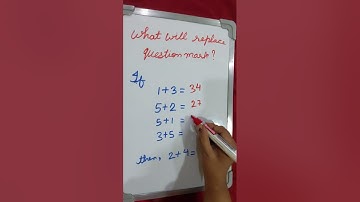 What will replace
question mark?
If
1+3 = 34
5+2 = 27
5+1 =
3+5 =
then, 2+4 =